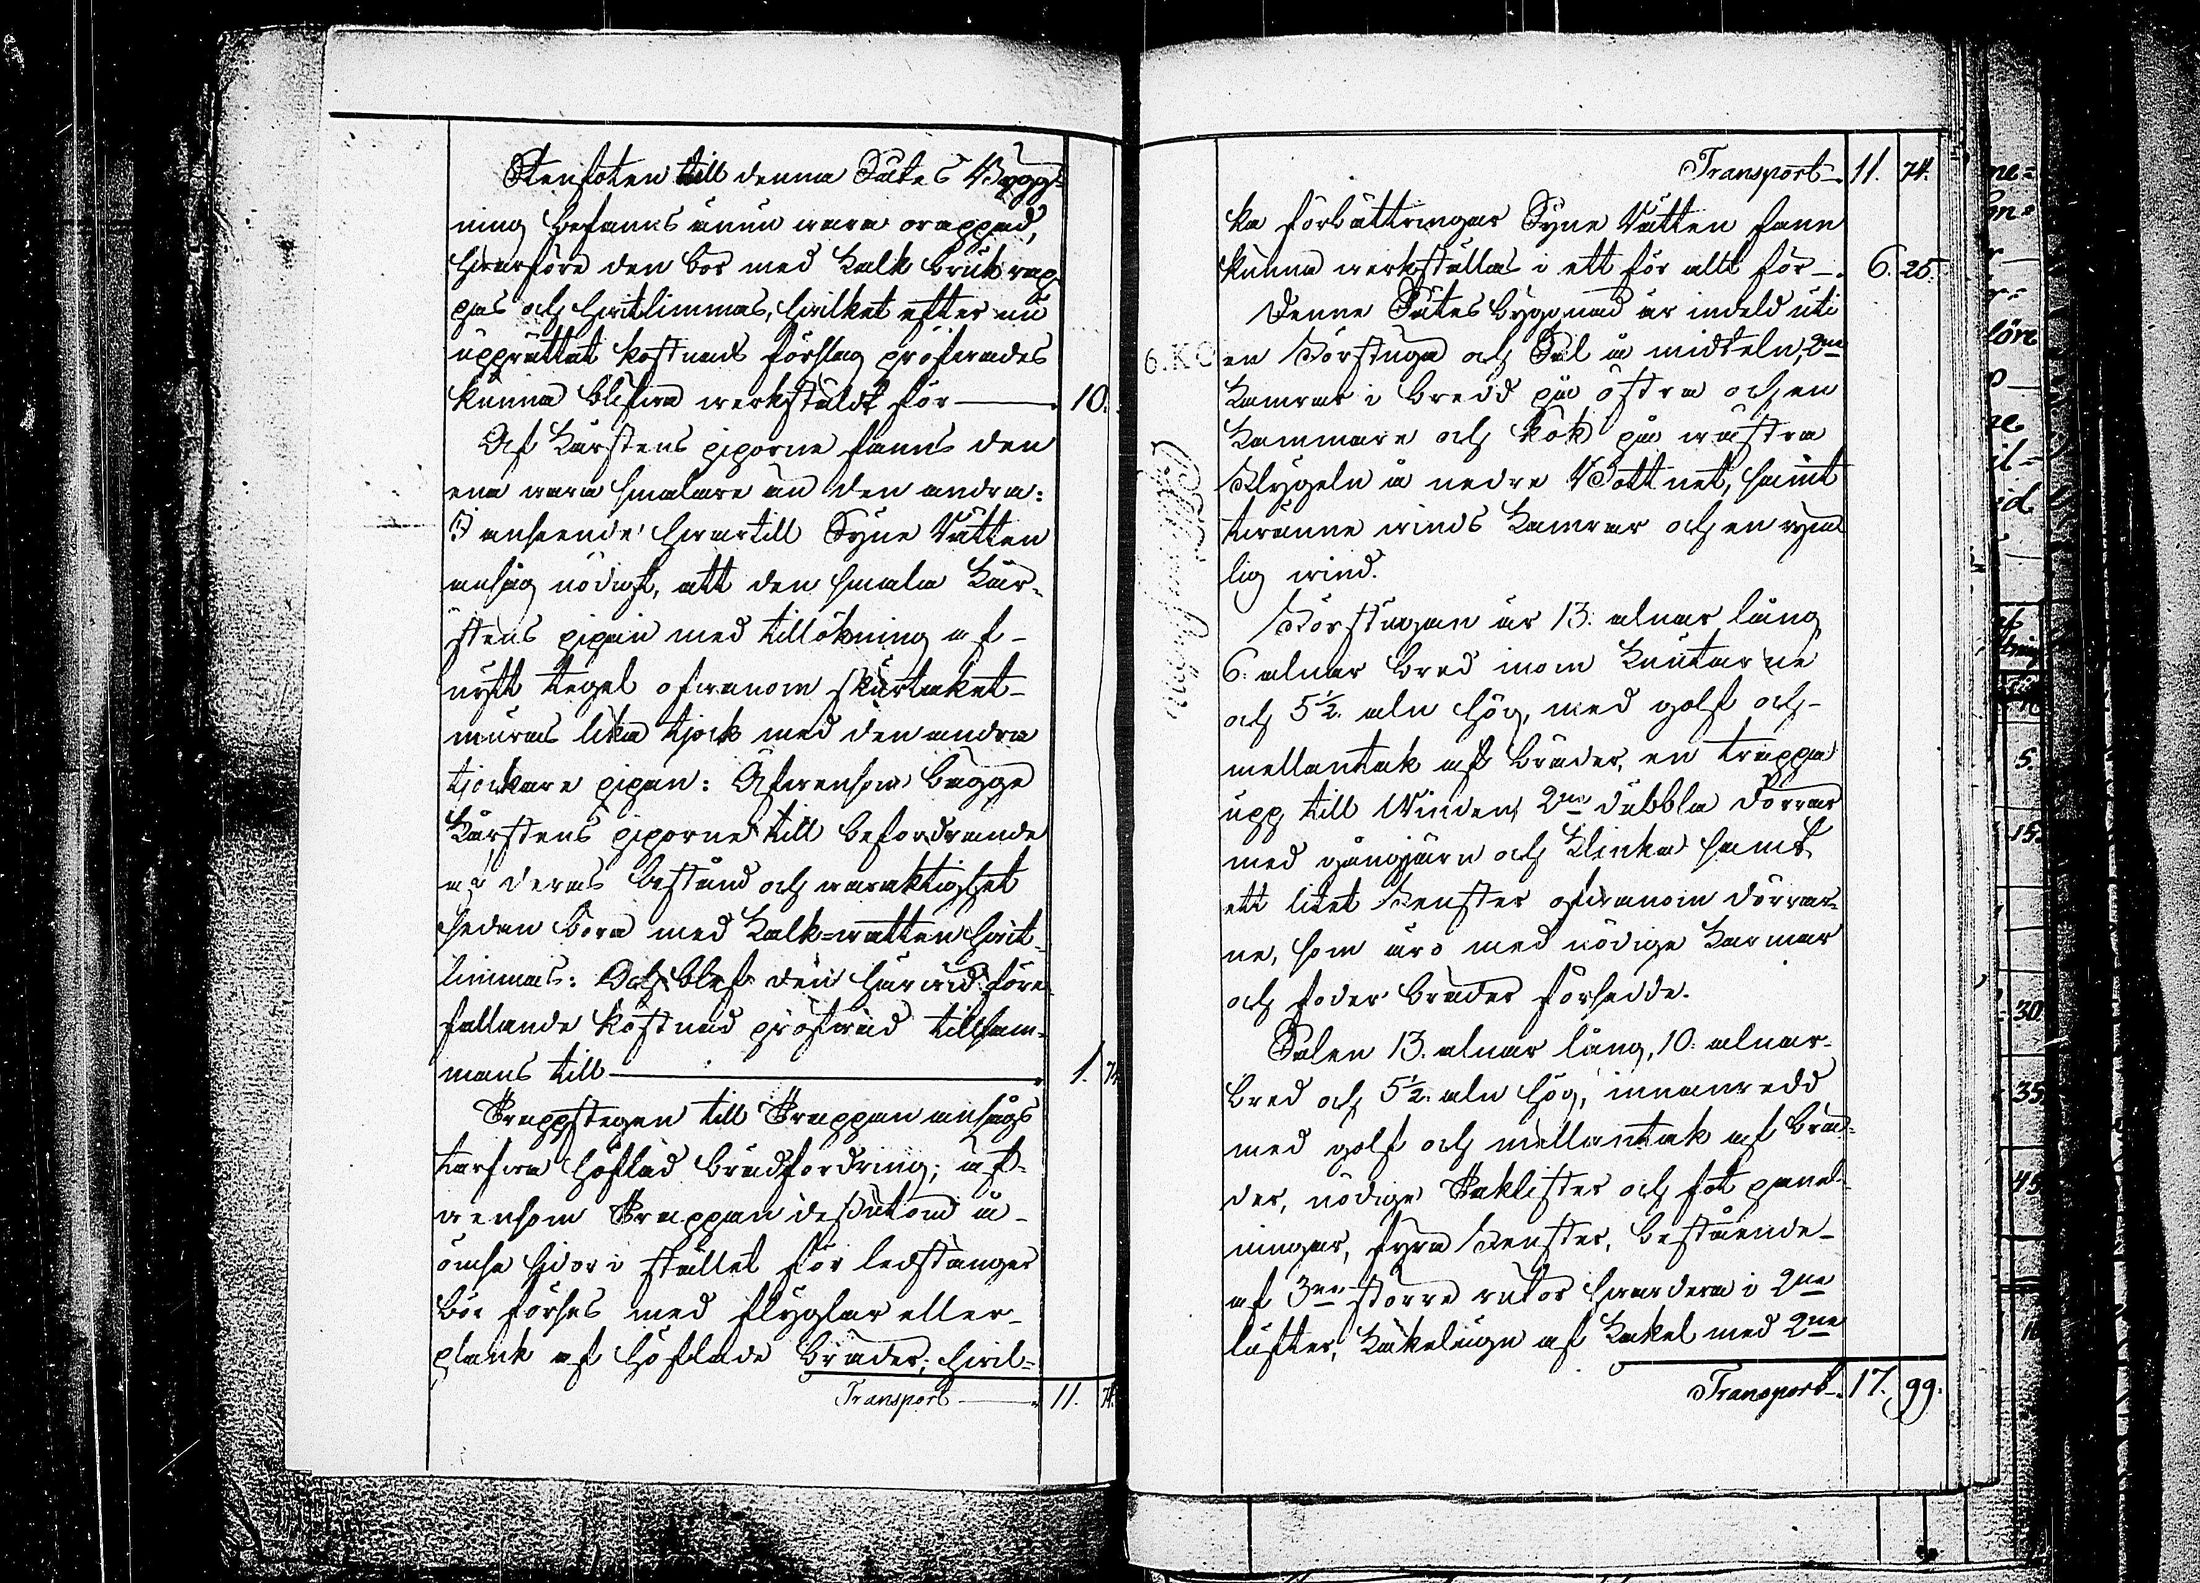 Stenfoten till denna Sätes Bygg-
ning befanns ännu wara orappad,
hwarföre den bör med Kalk bruk rap
pas och hwitlimmas, hwilket efter nu
upprättat kostnads förslag pröfwades
kunna blifwa werkstäldt för — 10.
Af Skorstens piporne fanns den
ena wara smalare än den andra:
I anseende hwartill Syne Rätten
ansåg nödigt, att den smala Skor-
stens pipan med tillökning af
nytt tegel ofwanom skurtaket
muras lika tjock med den andra
tjockare pipan: Äfwensom bägge
Skorstens piporne till befordrande
af deras bestånd och waraktighet
sedan böra med Kalk-watten hwit-
limmas: Och blef den härwid före
fallande kostnad pröfwad tillsam-
mans till — 1. 74
Trappstegen till Trappan ansågs
tarfwa höflad brädfordring; äf-
wensom Trappan dessutom å
ömse sidor i stället för ledstänger
bör förses med flyglar eller
plank af höflade bräder; hwil-
Transport — 11. 74.
Transport — 11. 74.
ka förbättringar Syne Rätten fann
kunna werkställas i ett för allt för — 6. 25.
Denne Sätes byggnad är indeld uti
6.KO en Förstuga och Sal i midteln, 2ne
Kamrar i bredd på östra och en
Kammare och kök på wästra
Flygeln å nedre Bottnet, samt
twänne winds Kamrar och en rym
lig wind.
Förstugan är 13. alnar lång
6. alnar bred inom Knutarne
och 5½. aln hög, med golf och
mellantak af bräder, en trappa
upp till Winden, 2ne dubbla dörrar
med gångjärn och Klinka samt
ett litet Fenster ofwanom dörrar-
ne, som äro med nödige Karmar
och foder bräder försedde.
Salen 13. alnar lång, 10. alnar
bred och 5½. aln hög, innanredd
med golf och mellantak af brä-
der, nödige Taklister och fot panel-
ningar, fyra Fenster, bestående
af 3ne större rutor hwardera i 2ne
lufter, Kakelugn af Kakel med 2ne
Transport — 17. 99.